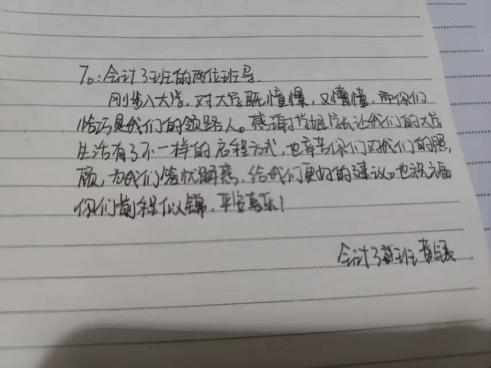 To:会计3班的两位班导
刚步入大学,对大学既憧憬,又懵懂,而你们
恰巧是我们的领路人。感谢学姐学长让我们的大学
生活有了不一样的启程方式,也辛苦你们对我们的照
顾,为我们答忧解惑,给我们更好的建议。也祝福
你们前程似锦,平安喜乐!
会计3班 黄